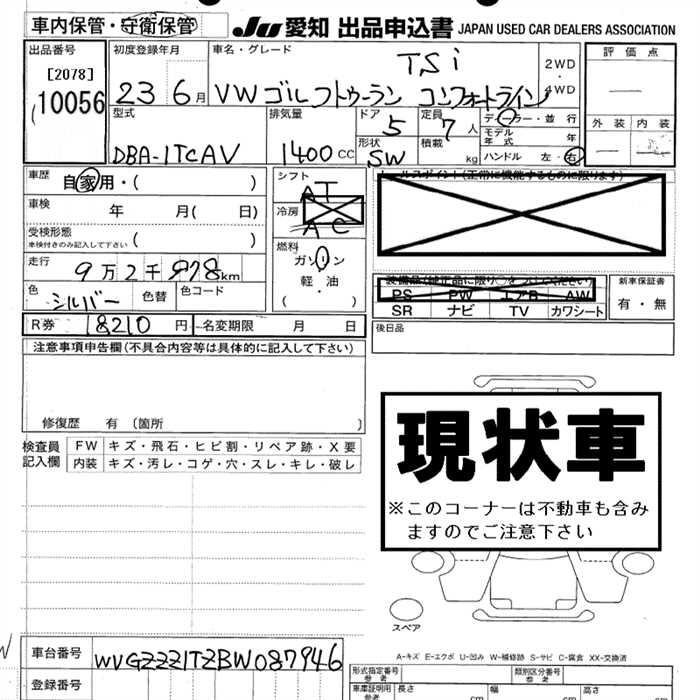 車内保管・守衛保管
JU 愛知 出品申込書 JAPAN USED CAR DEALERS ASSOCIATION
出品番号
[2078]
10056
初度登録年月
23 6月
車名・グレード
TSi
VW ゴルフトゥーラン コンフォートライン
2WD
・
4WD
評価点
外装 内装
型式
DBA-1TCAV
排気量
1400cc
ドア
5
形状
SW
定員
7人
積載
kg
ディーラー・並行
モデル年式 年
ハンドル 左・右
車歴
自家用・( )
車検
年 月( 日)
受検形態
車検付きのみ記入して下さい ( )
走行
9万2千978km
色
シルバー
色替
色コード
シフト
AT
冷房
AC
燃料
ガソリン
・
軽油
( )
セールスポイント(正常に機能するものに限ります)
装備品(純正品に限り○をつけてください)
PS PW エアB AW
SR ナビ TV カワシート
新車保証書
有・無
R券 18210円
名変期限 月 日
後日品
注意事項申告欄(不具合内容等は具体的に記入して下さい)
修復歴 有〔箇所 〕
検査員
記入欄
FW キズ・飛石・ヒビ割・リペア跡・X要
内装 キズ・汚レ・コゲ・穴・スレ・キレ・破レ
現状車
※このコーナーは不動車も含み
ますのでご注意下さい
スペア
A-キズ E-エクボ U-凹み W-補修跡 S-サビ C-腐食 XX-交換済
車台番号
WVGZZZ1TZBW087946
登録番号
形式指定番号
参考
類別区分番号
参考
車庫証明用
参考
長さ cm
幅 cm
高さ cm